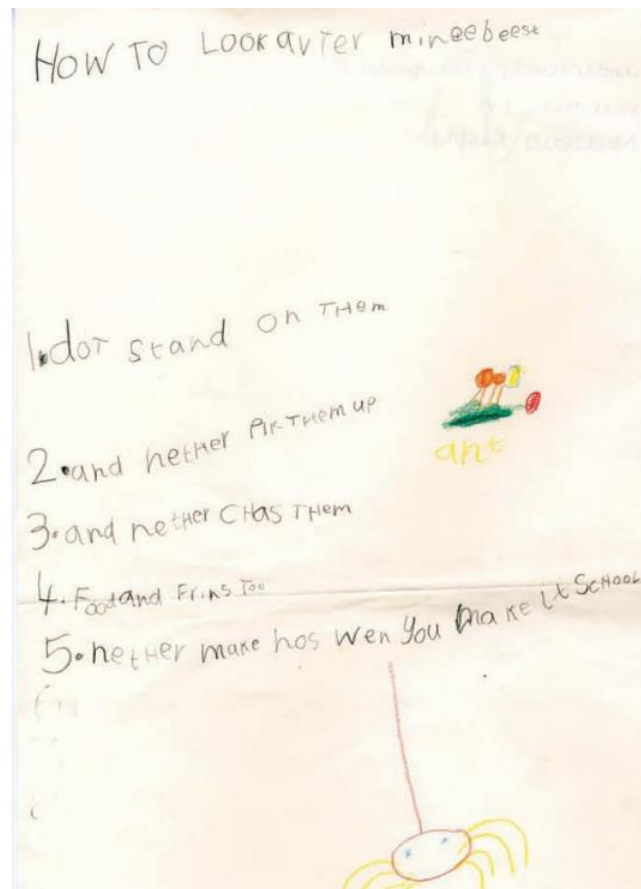 HOW TO LOOK avTer mineebeest
1. doT stand on THem
2. and netHer PikTHem up
ant
3. and netHer CHas THem
4. Food and Frins Too
5. netHer make hos wen you make it SCHOOL